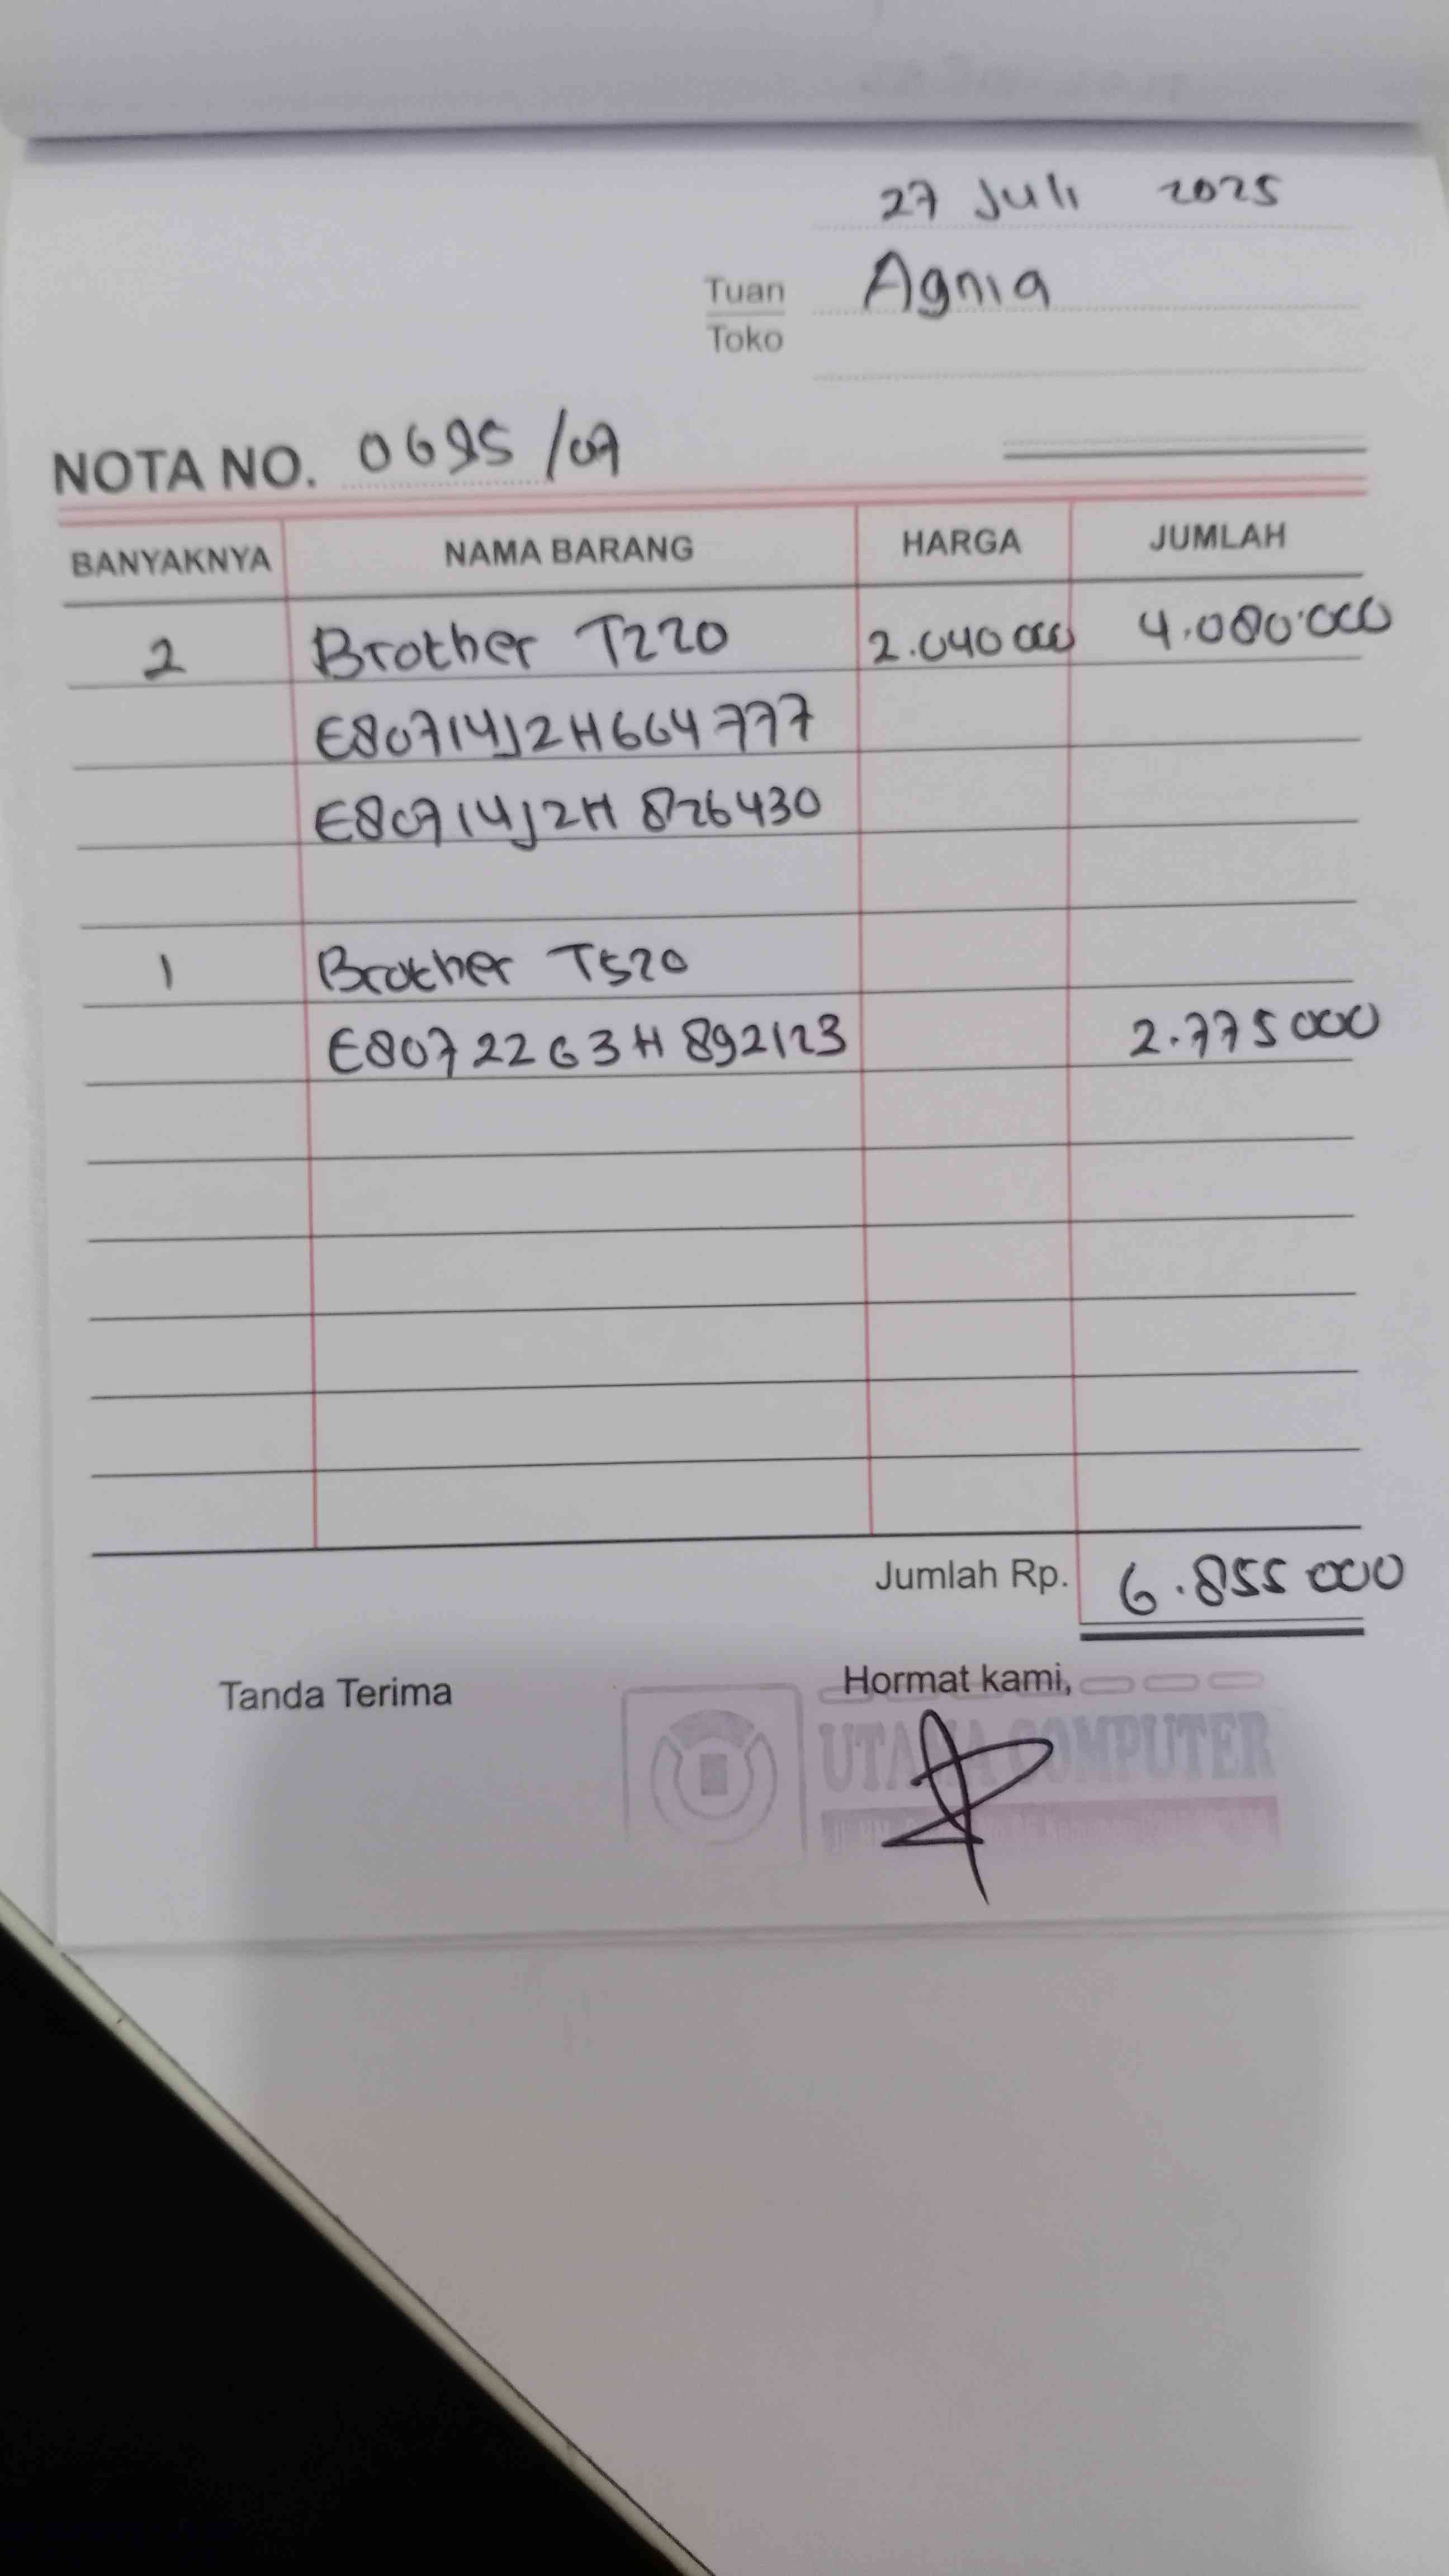 27 Juli 2025
Tuan Agnia
Toko
NOTA NO. 0695 /07
BANYAKNYA NAMA BARANG HARGA JUMLAH
2 Brother T220 2.040 000 4.080.000
E80714J2H664777
E80714J2H 826430
1 Brother T520
E80722G3H 892123 2.775 000
Jumlah Rp. 6.855 000
Tanda Terima Hormat kami,
COMPUTER